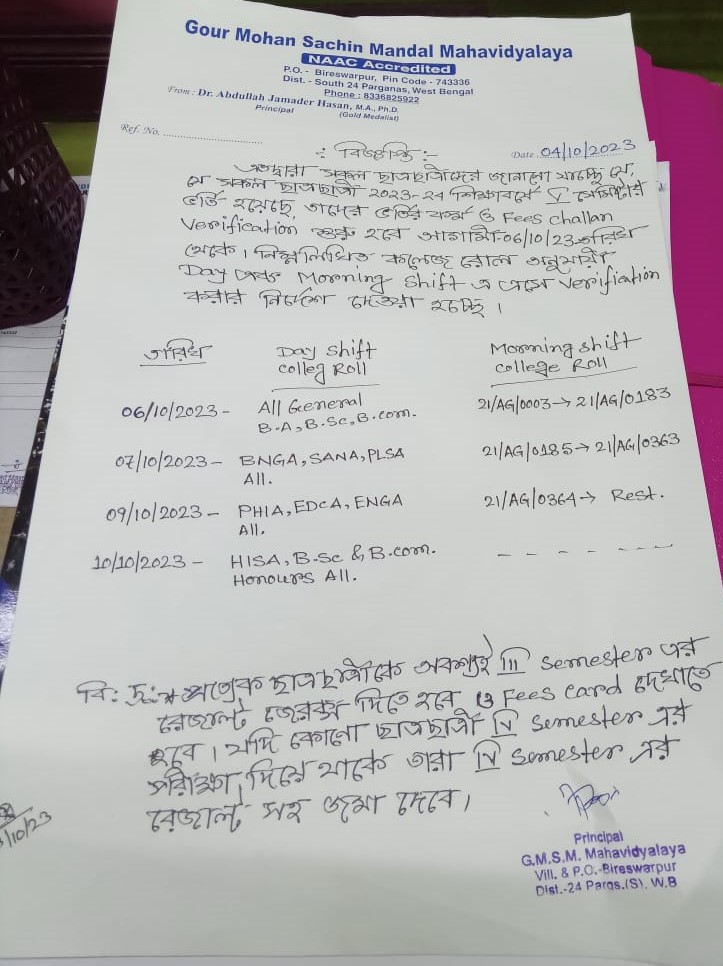 Gour Mohan Sachin Mandal Mahavidyalaya
NAAC Accredited
P.O. - Bireswarpur, Pin Code - 743336
Dist. - South 24 Parganas, West Bengal
Phone : 8336825922
From : Dr. Abdullah Jamader Hasan, M.A., Ph.D.
Principal (Gold Medalist)
Ref. No. ..............................
Date 04/10/2023
: বিজ্ঞপ্তি :-
এতদ্বারা সকল ছাত্রছাত্রীদের জানানো যাচ্ছে যে,
যে সকল ছাত্রছাত্রী 2023-24 শিক্ষাবর্ষে V সেমিস্টার
ভর্তি হয়েছে, তাদের ভর্তির ফর্ম ও Fees challan
Verification শুরু হবে আগামী-06/10/23 তারিখ
থেকে। নিম্নলিখিত কলেজ রোল অনুযায়ী
Day এবং Morning Shift এ এসে Verification
করার নির্দেশ দেওয়া হচ্ছে।
তারিখ Day Shift Morning Shift
colleg Roll college Roll
06/10/2023 - All General 21/AG/0003 → 21/AG/0183
B.A, B.Sc, B.com.
07/10/2023 - BNGA, SANA, PLSA 21/AG/0185 → 21/AG/0363
All.
09/10/2023 - PHIA, EDCA, ENGA 21/AG/0364 → Rest.
All.
10/10/2023 - HISA, B.Sc & B.com. - - - - - -
Honours All.
বি: দ্র: প্রত্যেক ছাত্রছাত্রীকে অবশ্যই III semester এর
রেজাল্ট জেরক্স দিতে হবে ও Fees card দেখাতে
হবে। যদি কোনো ছাত্রছাত্রী IV semester এর
পরীক্ষা দিয়ে থাকে তারা IV semester এর
রেজাল্ট সহ জমা দেবে।
/10/23
Principal
G.M.S.M. Mahavidyalaya
Vill. & P.O.-Bireswarpur
Dist.-24 Pargs.(S). W.B